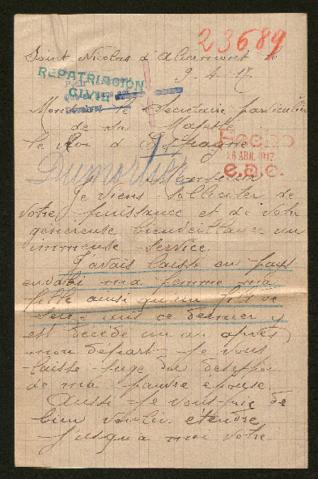 23689
Saint Nicolas d'Aliermont le
9-4-17
REPATRIACIÓN
CIVIL
Monsieur le Secrétaire particulier
de Sa Majesté
le Roi d'Espagne
Hecho
16 ABR. 1917
e.a.c.
Dumortier
Monsieur
Je viens solliciter de
votre puissance et de votre
généreuse bienveillance un
immense service
J'avais laissé au pays
envahi ma femme ma
fille ainsi qu'un fils de
ans ce dernier y
est décédé un an après
mon départ Je vous
laisse juge du désespoir
de ma pauvre épouse.
Aussi je vous prie de
bien vouloir étendre
jusqu'à moi votre